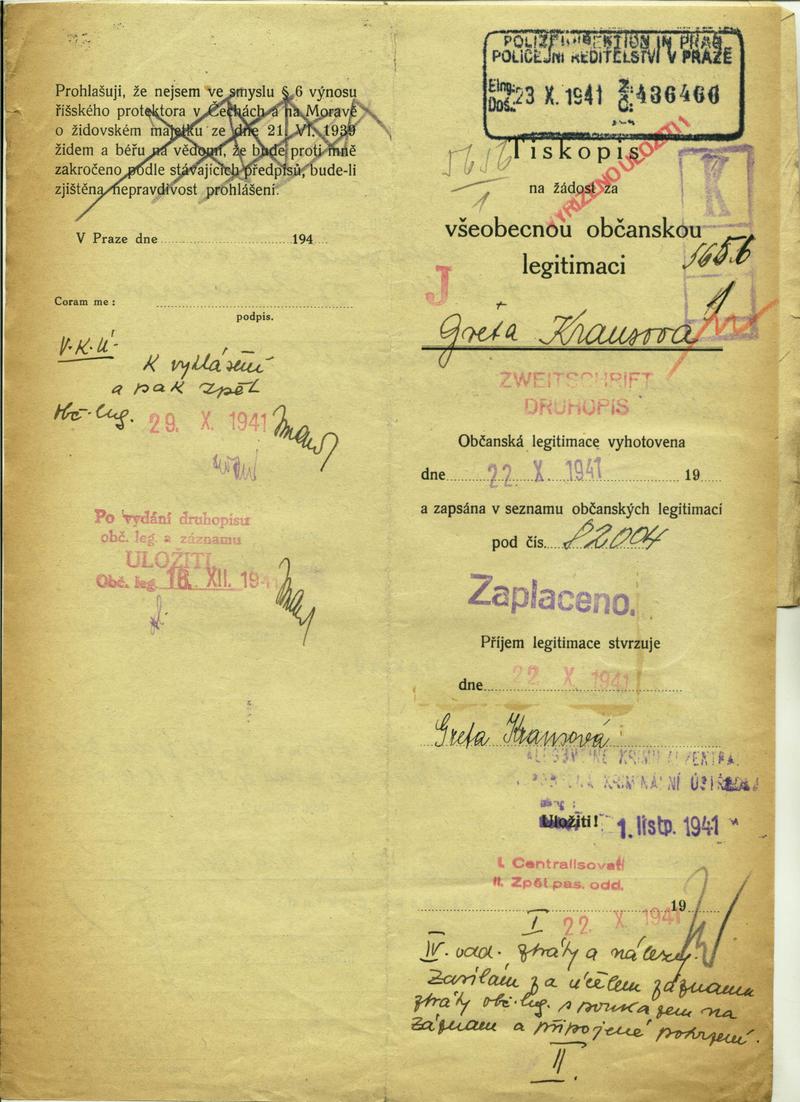 Prohlašuji, že nejsem ve smyslu § 6 výnosu
říšského protektora v Čechách a na Moravě
o židovském majetku ze dne 21. VI. 1939
židem a béřu na vědomí, že bude proti mně
zakročeno podle stávajících předpisů, bude-li
zjištěna nepravdivost prohlášení.
V Praze dne 194
Coram me :
podpis.
V.K.Ú.
K vyhlášení
a pak zpět
Obč. leg. 29. X. 1941
Po vydání druhopisu
obč. leg. a záznamu
ULOŽITI
Obč. leg. 16. XII. 1941
POLIZEIDIREKTION IN PRAG
POLICEJNÍ ŘEDITELSTVÍ V PRAZE
Eing.
Doš. 23 X. 1941 Z.
Č. 436466
5656
1
Tiskopis
na žádost za
VYŘÍZENO ULOŽITI !
K
všeobecnou občanskou
legitimaci
5656
1
J
Greta Krausova
ZWEITSCHRIFT
DRUHOPIS
Občanská legitimace vyhotovena
dne 22 X 1941 19
a zapsána v seznamu občanských legitimací
pod čís. 82004
Zaplaceno.
Příjem legitimace stvrzuje
dne 22 X 1941
Greta Krausová
KRIMINÁLNÍ ÚSTŘEDNA
Uložiti! 1. listp. 1941
I. Centralisovati
II. Zpět pas. odd.
19
I 22 X 1941
IV. odd. ztráty a nálezy.
Zasílám za účelem záznamu
ztráty obč. leg. s poukazem na
záznam a připojené potvrzení.
II